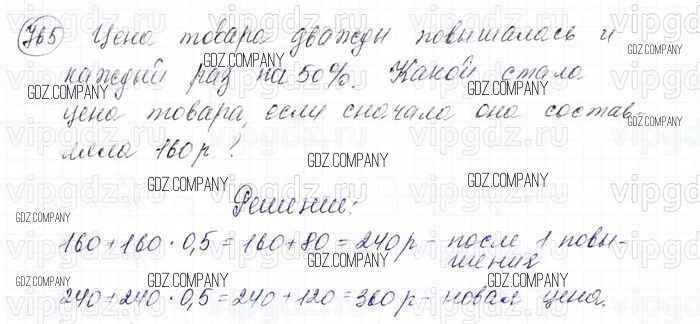 765 Цена товара дважды повышалась и
каждый раз на 50%. Какой стала
цена товара, если сначала она состав-
ляла 160р.?
Решение:
160+160·0,5=160+80=240р - после 1 повы-
шения
240+240·0,5=240+120=360р - новая цена.
GDZ.COMPANY
GDZ.COMPANY
GDZ.COMPANY
GDZ.COMPANY
GDZ.COMPANY
GDZ.COMPANY
GDZ.COMPANY
GDZ.COMPANY
GDZ.COMPANY
GDZ.COMPANY
GDZ.COMPANY
vipgdz.ru